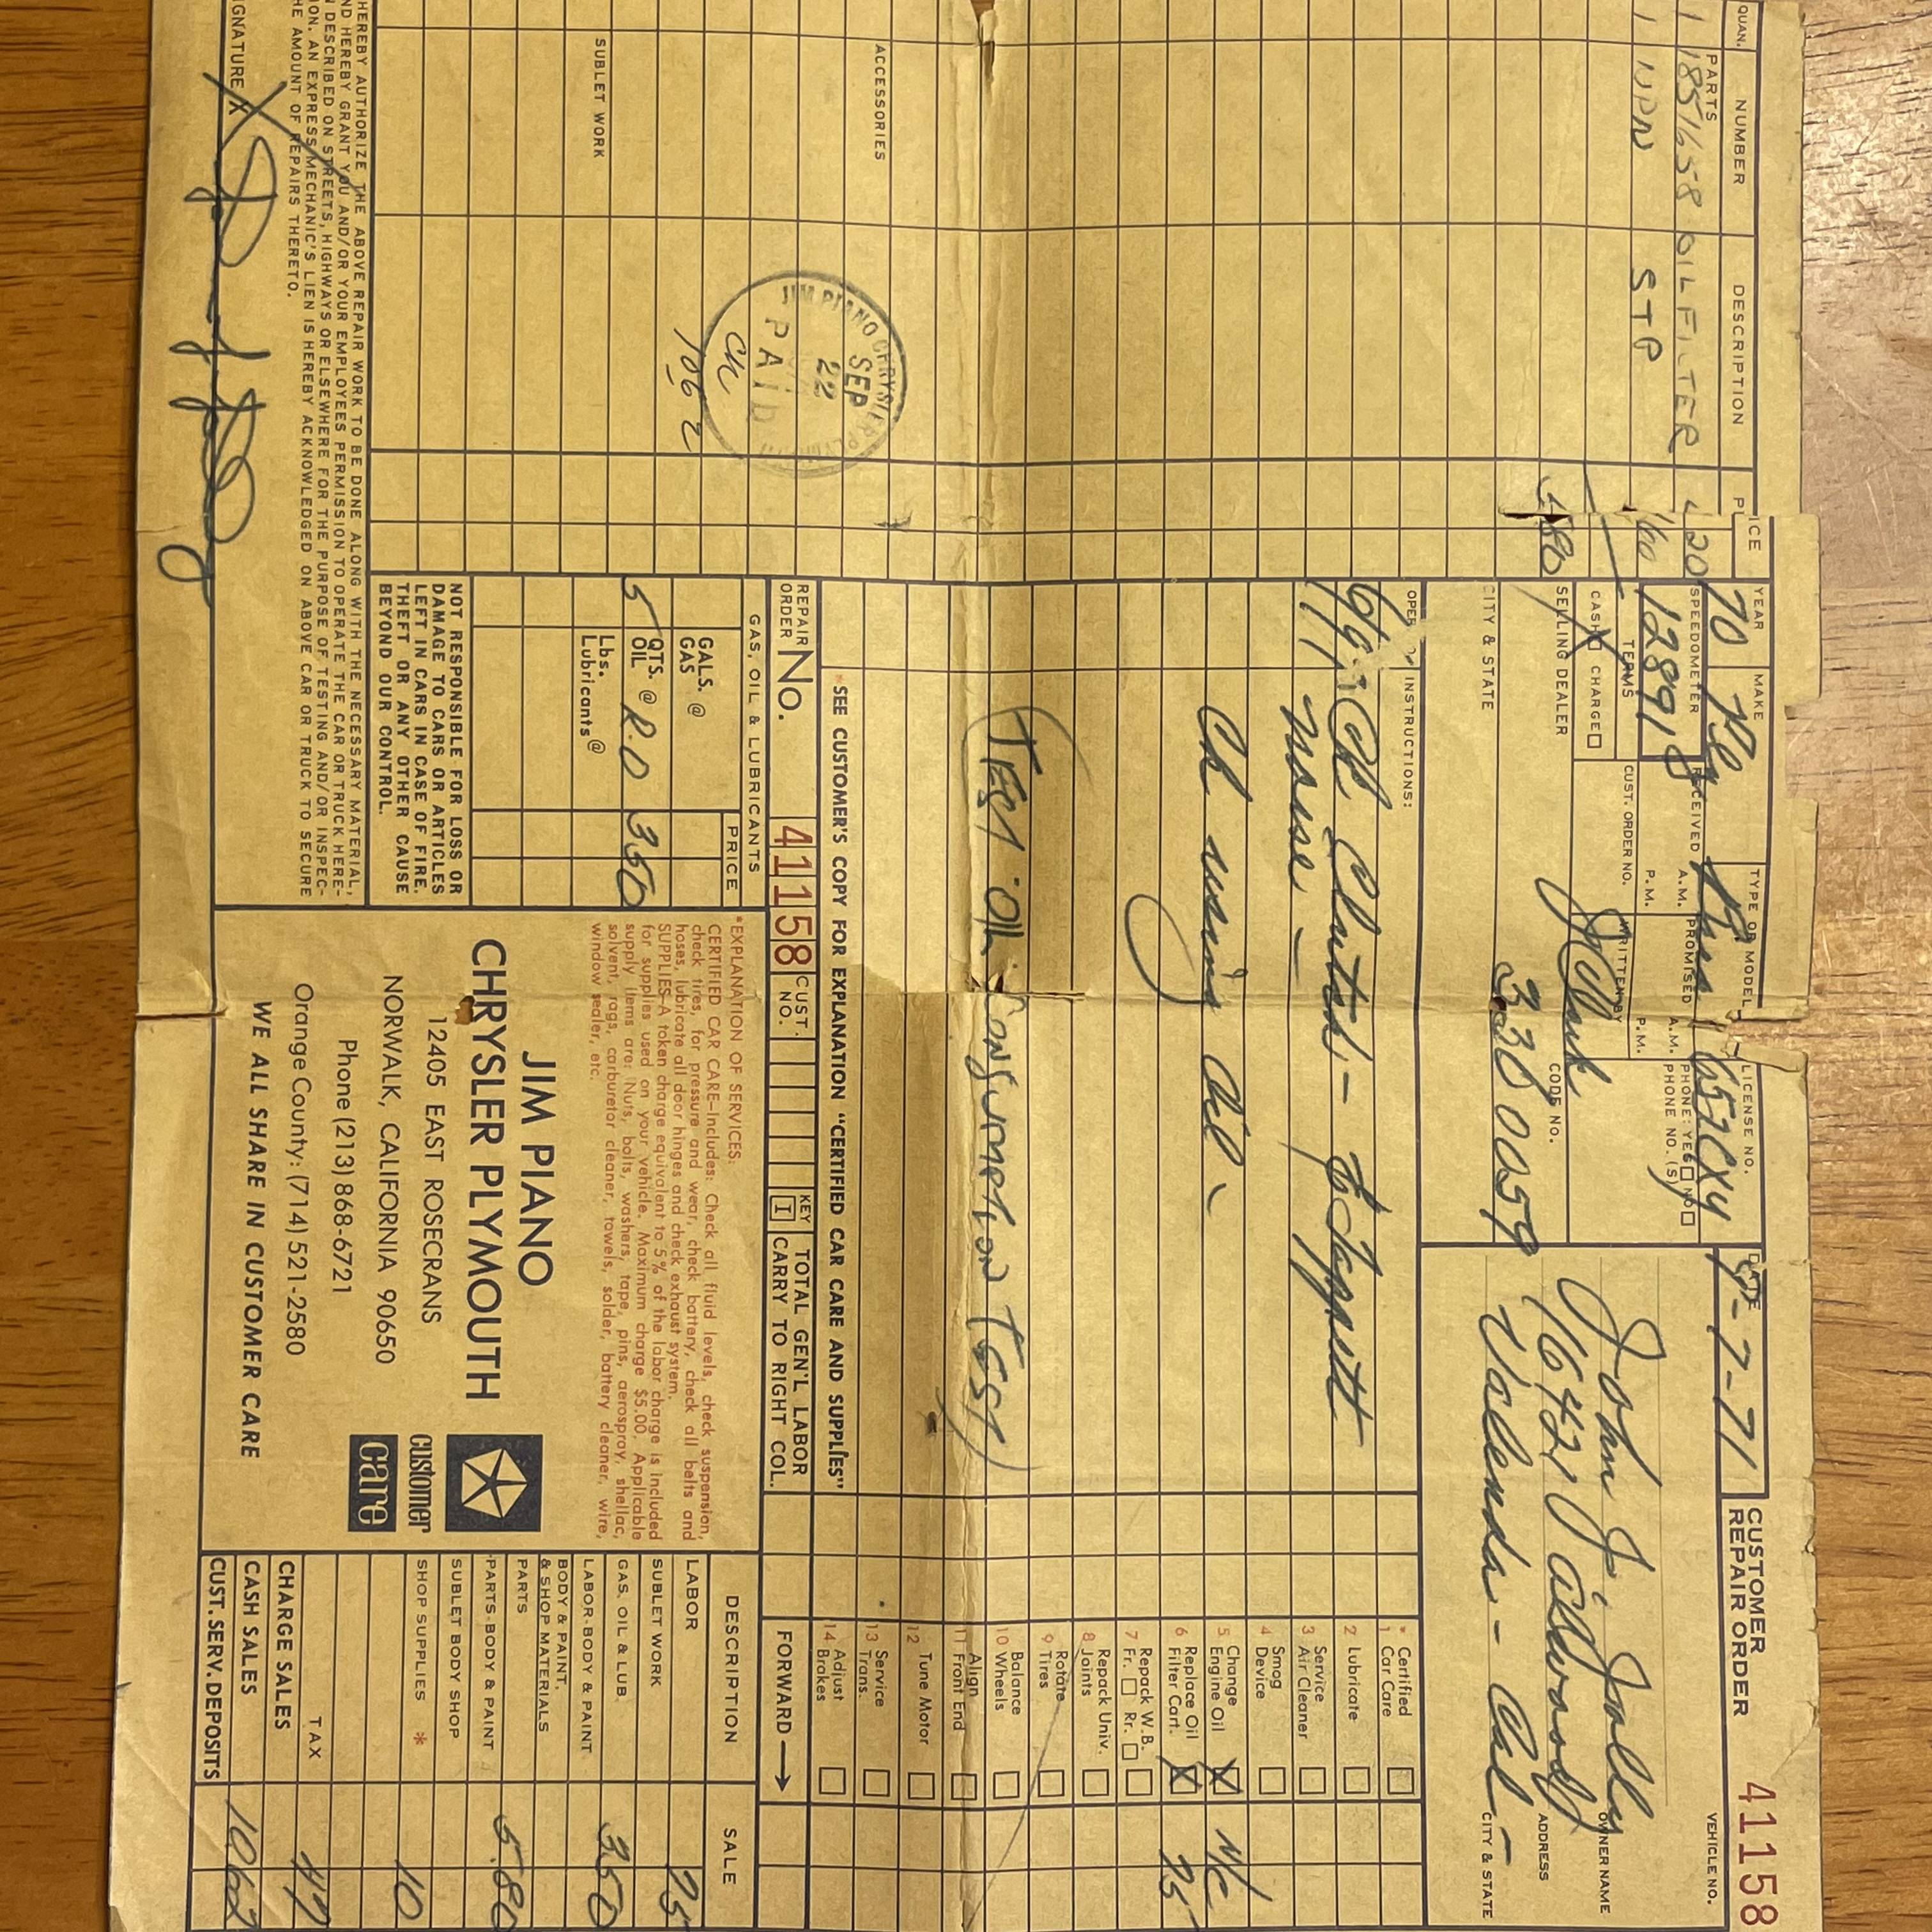 CUSTOMER
REPAIR ORDER
41158
VEHICLE NO.
QUAN.
PARTS
NUMBER
DESCRIPTION
PRICE
1 1851658 OIL FILTER 4 20
1 NPN STP 1 60
5 80
ACCESSORIES
SUBLET WORK
JIM PIANO CHRYSLER PLYMOUTH
SEP
22
PAID
CK
1062
YEAR
70
MAKE
Ply
TYPE OR MODEL
LICENSE NO.
657CXY
DATE
9-7-71
SPEEDOMETER
12891
RECEIVED A.M. P.M.
PROMISED A.M. P.M.
PHONE: YES NO
PHONE NO. (S)
TERMS
CASH CHARGE
CUST. ORDER NO.
WRITTEN BY
SELLING DEALER
CODE NO.
CITY & STATE
330 0059
OWNER NAME
ADDRESS
16421
CITY & STATE
INSTRUCTIONS:
Ck Clutch -
noise -
Ck using oil -
(TEST OIL Consumption Test)
* Certified
1 Car Care
2 Lubricate
3 Service
Air Cleaner
4 Smog
Device
5 Change
Engine Oil X N/C
6 Replace Oil
Filter Cart. X 75
7 Repack W.B.
Fr. Rr.
8 Repack Univ.
Joints
9 Rotate
Tires
10 Balance
Wheels
11 Align
Front End
12 Tune Motor
13 Service
Trans.
14 Adjust
Brakes
*SEE CUSTOMER'S COPY FOR EXPLANATION "CERTIFIED CAR CARE AND SUPPLIES"
FORWARD
REPAIR
ORDER No. 41158
CUST.
NO.
KEY
1
TOTAL GEN'L LABOR
CARRY TO RIGHT COL.
GAS, OIL & LUBRICANTS
PRICE
GALS.
GAS @
5 QTS.
OIL @ R.O 3 50
Lbs.
Lubricants @
NOT RESPONSIBLE FOR LOSS OR
DAMAGE TO CARS OR ARTICLES
LEFT IN CARS IN CASE OF FIRE,
THEFT OR ANY OTHER CAUSE
BEYOND OUR CONTROL.
*EXPLANATION OF SERVICES:
CERTIFIED CAR CARE—Includes: Check all fluid levels, check suspension,
check tires, for pressure and wear, check battery, check all belts and
hoses, lubricate all door hinges and check exhaust system.
SUPPLIES—A token charge equivalent to 5% of the labor charge is included
for supplies used on your vehicle. Maximum charge $5.00. Applicable
supply items are: Nuts, bolts, washers, tape, pins, aerospray, shellac,
solvent, rags, carburetor cleaner, towels, solder, battery cleaner, wire,
window sealer, etc.
JIM PIANO
CHRYSLER PLYMOUTH
12405 EAST ROSECRANS
NORWALK, CALIFORNIA 90650
Phone (213) 868-6721
Orange County: (714) 521-2580
WE ALL SHARE IN CUSTOMER CARE
customer
care
DESCRIPTION
SALE
LABOR 75
SUBLET WORK
GAS, OIL & LUB. 3 50
LABOR-BODY & PAINT
BODY & PAINT,
& SHOP MATERIALS
PARTS 5.80
PARTS-BODY & PAINT
SUBLET BODY SHOP
SHOP SUPPLIES * 10
TAX 47
CHARGE SALES
CASH SALES 1062
CUST. SERV. DEPOSITS
HEREBY AUTHORIZE THE ABOVE REPAIR WORK TO BE DONE ALONG WITH THE NECESSARY MATERIAL,
ND HEREBY GRANT YOU AND/OR YOUR EMPLOYEES PERMISSION TO OPERATE THE CAR OR TRUCK HERE-
N DESCRIBED ON STREETS, HIGHWAYS OR ELSEWHERE FOR THE PURPOSE OF TESTING AND/OR INSPEC-
ION. AN EXPRESS MECHANIC'S LIEN IS HEREBY ACKNOWLEDGED ON ABOVE CAR OR TRUCK TO SECURE
HE AMOUNT OF REPAIRS THERETO.
IGNATURE X